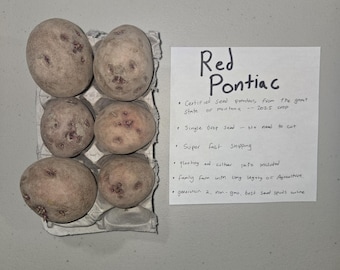 Red
Pontiac
• Certified Seed potatoes, from the great
state of montana -- 2025 seed
• Single Drop seed - no need to cut
• Super fast shipping
• Planting and culture info included
• family farm with long legacy of Agriculture
• generation 2, non-gmo, best seed spuds online